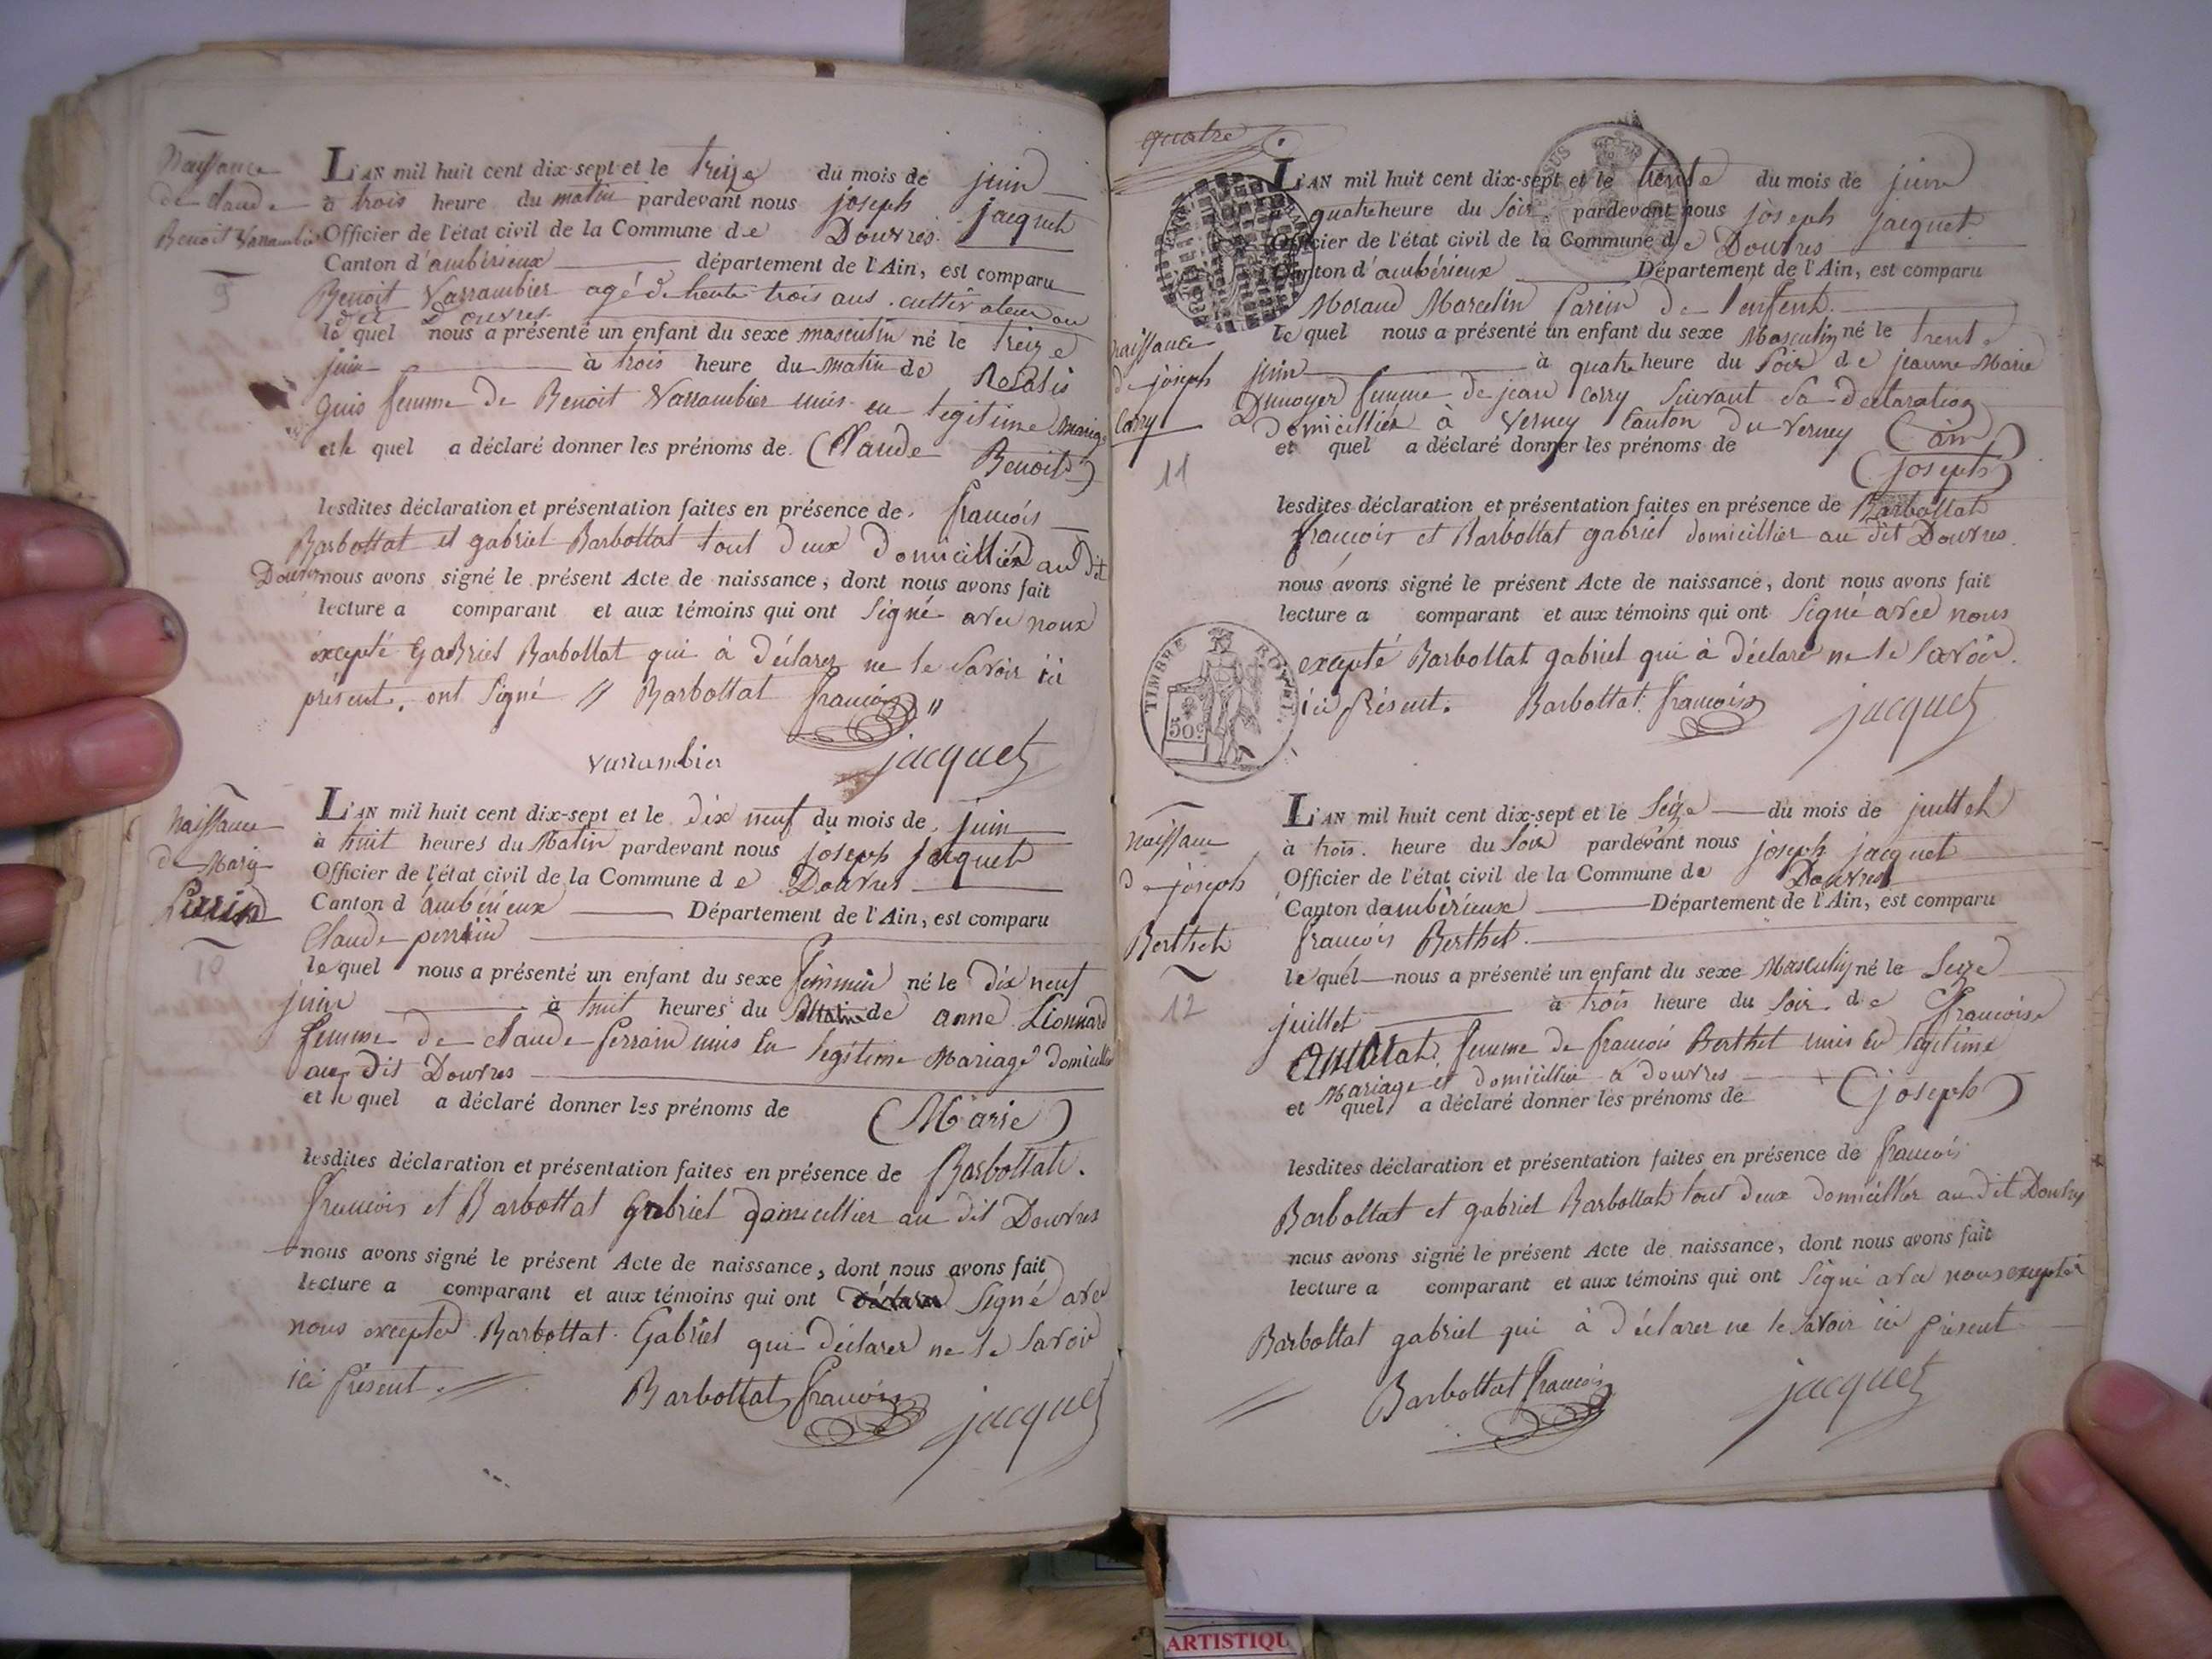 Naissance
de claude
Benoit Varrambier
9
L'AN mil huit cent dix-sept et le treize du mois de juin
à trois heure du matin pardevant nous joseph jacquet
Officier de l'état civil de la Commune de Douvres
Canton d'ambérieux département de l'Ain, est comparu
Benoit Varrambier agé de trente trois ans cultivateur au
dit Douvres
le quel nous a présenté un enfant du sexe masculin né le treize
juin à trois heure du matin de
guis femme de Benoit Varrambier unis en legitime mariage
et le quel a déclaré donner les prénoms de (Claude
Benoit)
lesdites déclaration et présentation faites en présence de françois
Barbottat et gabriel Barbottat tout deux domicilliés au dit
Douvres nous avons signé le présent Acte de naissance, dont nous avons fait
lecture a comparant et aux témoins qui ont signé avec nous
excepté Gabriel Barbottat qui à déclarer ne le savoir ici
présent, ont signé // Barbottat françois //
varrambier jacquet
naissance
de Marie
Perrin
10
L'AN mil huit cent dix-sept et le dix neuf du mois de juin
à huit heures du Matin pardevant nous joseph jacquet
Officier de l'état civil de la Commune de Douvres
Canton d'ambérieux Département de l'Ain, est comparu
Claude perrin
le quel nous a présenté un enfant du sexe féminin né le dix neuf
juin à huit heures du Matin de anne Lionnard
femme de claude perrin unis en legitime Mariage domicillié
au dit Douvres
et le quel a déclaré donner les prénoms de (Marie)
lesdites déclaration et présentation faites en présence de Barbottat
françois et Barbottat Gabriel domicillier au dit Douvres
nous avons signé le présent Acte de naissance, dont nous avons fait
lecture a comparant et aux témoins qui ont signé avec
nous excepter Barbottat Gabriel qui déclarer ne le savoir
ici présent.
Barbottat françois jacquet
quatre
naissance
de joseph
Corry
11
L'AN mil huit cent dix-sept et le trente du mois de juin
quatre heure du soir pardevant nous joseph jacquet
Officier de l'état civil de la Commune de Douvres
Canton d'ambérieux Département de l'Ain, est comparu
Morand Marcelin parein de l'enfent
le quel nous a présenté un enfant du sexe Masculin né le trente
juin à quatre heure du soir de jeanne Marie
Dunoyer femme de jean corry suivant sa declaration
domicilliés à Verney Canton du Verney (ain)
et quel a déclaré donner les prénoms de
(joseph)
lesdites déclaration et présentation faites en présence de Barbottat
françois et Barbottat gabriel domicillier au dit Douvres
nous avons signé le présent Acte de naissance, dont nous avons fait
lecture a comparant et aux témoins qui ont signé avec nous
excepté Barbottat gabriel qui à déclaré ne le savoir
ici présent. Barbottat françois jacquet
TIMBRE ROYAL
50c
naissance
de joseph
Berthet
12
L'AN mil huit cent dix-sept et le seize du mois de juillet
à trois heure du soir pardevant nous joseph jacquet
Officier de l'état civil de la Commune de Douvres
Canton dambérieux Département de l'Ain, est comparu
françois Berthet
le quel nous a présenté un enfant du sexe Masculin né le seize
juillet à trois heure du soir de françoise
femme de françois Berthet unis en legitime
Mariage et domicillié a douvres
et quel a déclaré donner les prénoms de (joseph)
lesdites déclaration et présentation faites en présence de françois
Barbottat et gabriel Barbottat tout deux domicillier au dit Douvres
nous avons signé le présent Acte de naissance, dont nous avons fait
lecture a comparant et aux témoins qui ont signé avec nous excepter
Barbottat gabriel qui à déclarer ne le savoir ici présent
Barbottat françois jacquet
ARTISTIQU